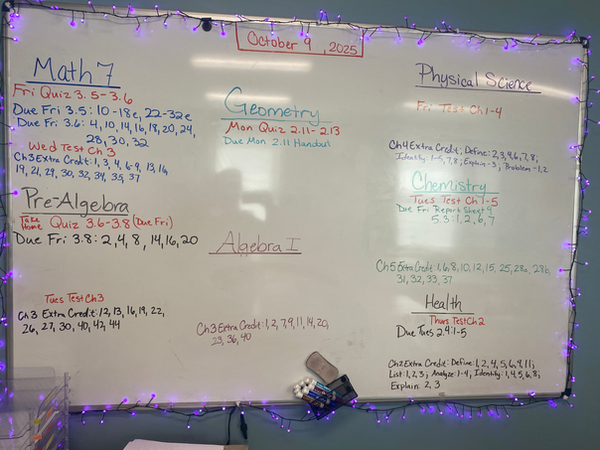 October 9, 2025
Math 7
Fri Quiz 3.5-3.6
Due Fri 3.5: 10-18e, 22-32e
Due Fri 3.6: 4, 10, 14, 16, 18, 20, 24,
28, 30, 32
Wed Test Ch 3
Ch3 Extra Credit: 1, 3, 4, 6-9, 13, 16,
19, 21, 29, 30, 32, 34, 35, 37
Pre-Algebra
Take Home Quiz 3.6-3.8 (Due Fri)
Due Fri 3.8: 2, 4, 8, 14, 16, 20
Tues Test Ch 3
Ch 3 Extra Credit: 12, 13, 16, 19, 22,
26, 27, 30, 40, 42, 44
Geometry
Mon Quiz 2.11-2.13
Due Mon 2.11 Handout
Algebra I
Ch3 Extra Credit: 1, 2, 7, 9, 11, 14, 20,
23, 36, 40
Physical Science
Fri Test Ch 1-4
Ch4 Extra Credit: Define: 2, 3, 4, 6, 7, 8;
Identify: 1-5, 7, 8; Explain-3; Problem-1, 2
Chemistry
Tues Test Ch 1-5
Due Fri Report Sheet 4
5.3: 1, 2, 6, 7
Ch5 Extra Credit: 1, 6, 8, 10, 12, 15, 25, 28a, 28b,
31, 32, 33, 37
Health
Thurs Test Ch 2
Due Tues 2.4: 1-5
Ch2 Extra Credit: Define: 1, 2, 4, 5, 6, 9, 11;
List: 1, 2, 3; Analyze: 1-4; Identify: 1, 4, 5, 6, 8;
Explain: 2, 3